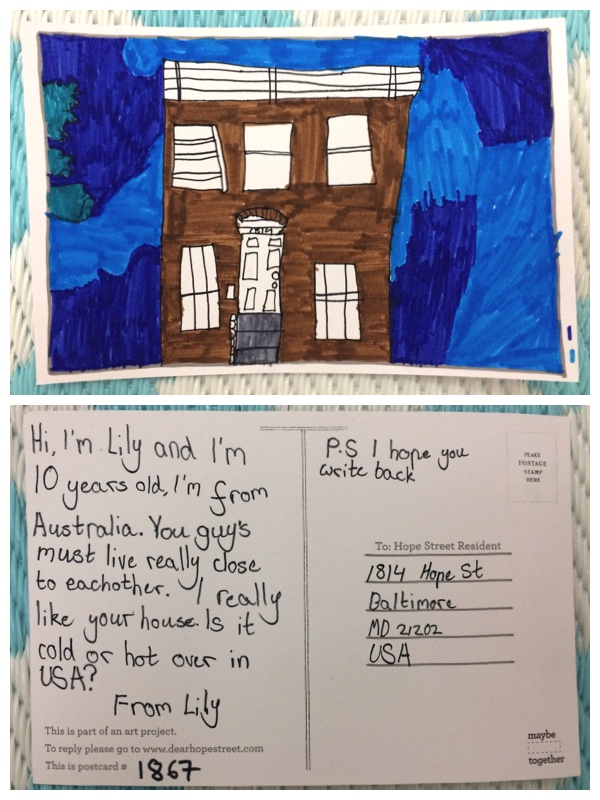 1814
Hi, I'm Lily and I'm
10 years old, I'm from
Australia. You guy's
must live really close
to eachother. I really
like your house. Is it
cold or hot over in
USA?
From Lily
This is part of an art project.
To reply please go to www.dearhopestreet.com
This is postcard # 1867
P.S I hope you
write back
PLACE
POSTAGE
STAMP
HERE
To: Hope Street Resident
1814 Hope St
Baltimore
MD 21202
USA
maybe
together